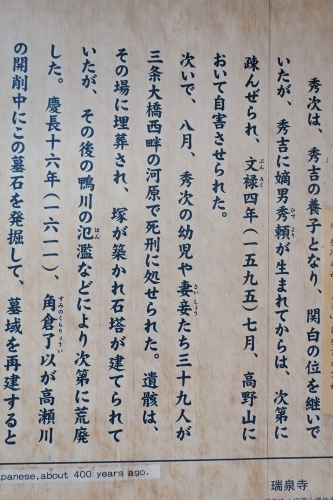 秀次は、秀吉の養子となり、関白の位を継いで
いたが、秀吉に嫡男秀頼が生まれてからは、次第に
疎んぜられ、文禄四年（一五九五）七月、高野山に
おいて自害させられた。
次いで、八月、秀次の幼児や妻妾たち三十九人が
三条大橋西畔の河原で死刑に処せられた。遺骸は、
その場に埋葬され、塚が築かれ石塔が建てられて
いたが、その後の鴨川の氾濫などにより次第に荒廃
した。慶長十六年（一六一一）、角倉了以が高瀬川
の開削中にこの墓石を発掘して、墓域を再建すると
panese,about 400 years ago.
瑞泉寺